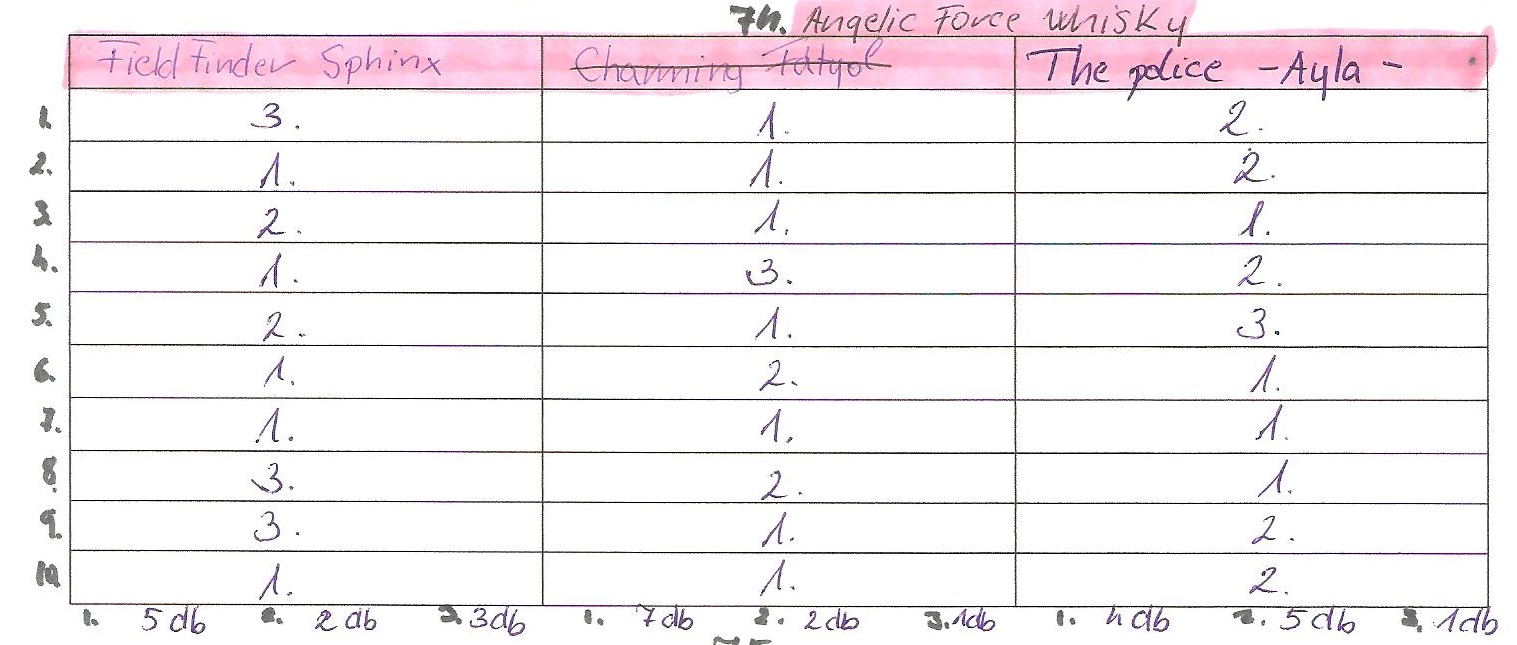 74. Angelic Force Whisky
Field Finder Sphinx Charming Fátyol The police - Ayla -
1. 3. 1. 2.
2. 1. 1. 2.
3. 2. 1. 1.
4. 1. 3. 2.
5. 2. 1. 3.
6. 1. 2. 1.
7. 1. 1. 1.
8. 3. 2. 1.
9. 3. 1. 2.
10. 1. 1. 2.
1. 5 db 2. 2 db 3. 3 db 1. 7 db 2. 2 db 3. 1 db 1. 4 db 2. 5 db 3. 1 db